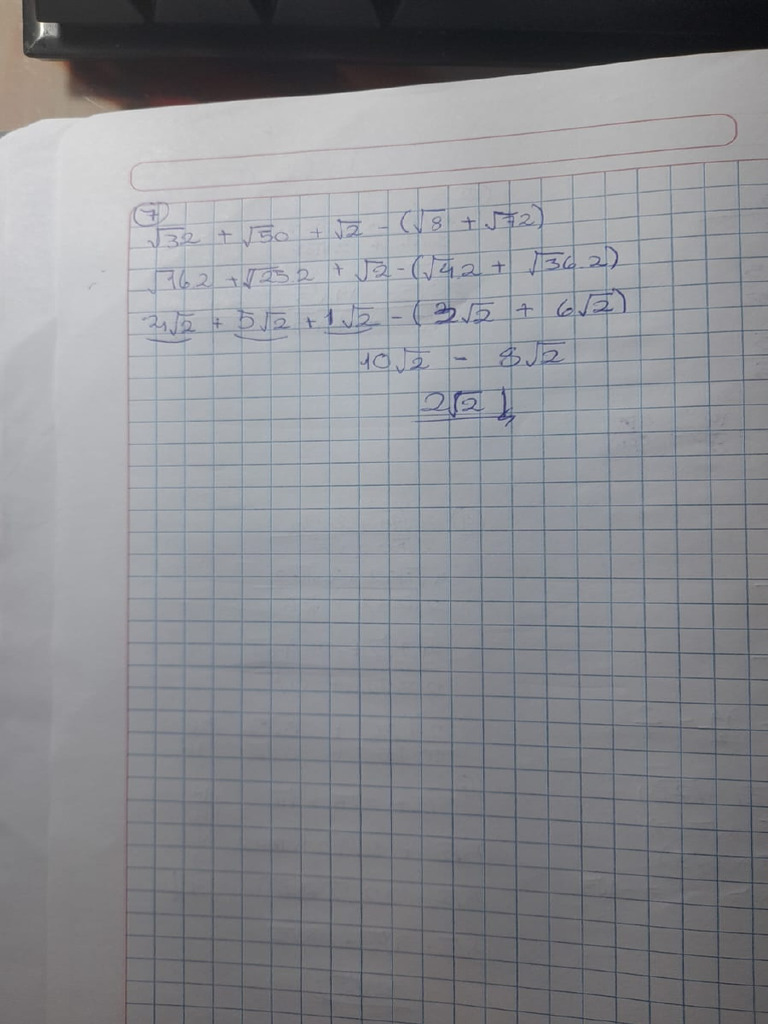 7
√32 + √50 + √2 - (√8 + √72)
√16.2 + √25.2 + √2 - (√4.2 + √36.2)
4√2 + 5√2 + 1√2 - (2√2 + 6√2)
10√2 - 8√2
2√2